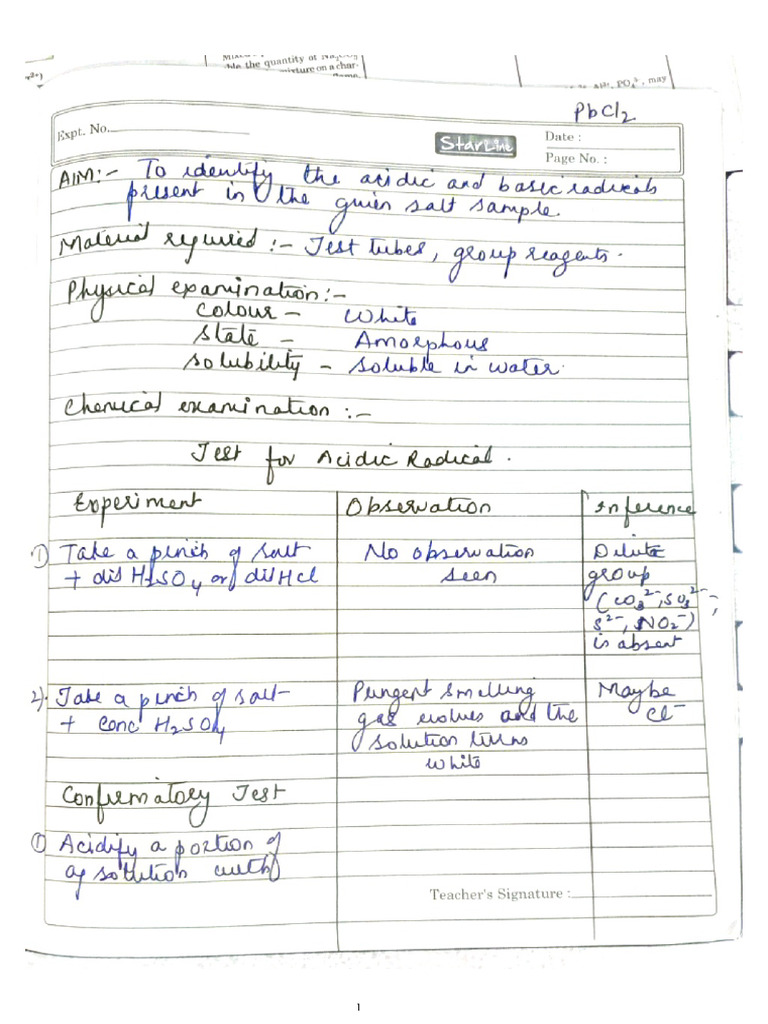 Mixtu
ble the quantity of Na₂CO₃
mixture on a char-
Al³⁺, PO₄³⁻, may
PbCl₂
Expt. No.
StarLine
Date :
Page No. :
AIM:- To identify the acidic and basic radicals
present in the given salt sample.
Material required :- Test tubes, group reagents.
Physical examination:-
Colour - White
State - Amorphous
Solubility - Soluble in water.
Chemical examination :-
Test for Acidic Radical.
Experiment Observation Inference
① Take a pinch of salt No observation Dilute
+ dil H₂SO₄ or dil HCl seen group
(CO₃²⁻, SO₃²⁻,
S²⁻, NO₂⁻)
is absent
2). Take a pinch of salt Pungent smelling Maybe
+ Conc H₂SO₄ gas evolves and the Cl⁻
solution turns
white
Confirmatory Test
① Acidify a portion of
aq solution with
Teacher's Signature :
1